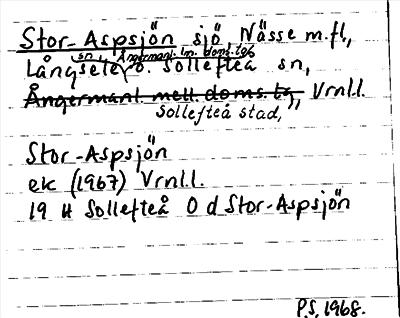 Stor-Aspsjön sjö, Nässe m.fl.,
sn, Ångermanl. m. doms. tg
Långsele o. Sollefteå sn,
Ångermanl. mell. doms. tg, Vrnll.
Sollefteå stad,
Stor-Aspsjön
ek (1967) Vrnll.
19 H Sollefteå 0 d Stor-Aspsjön
P.S. 1968.